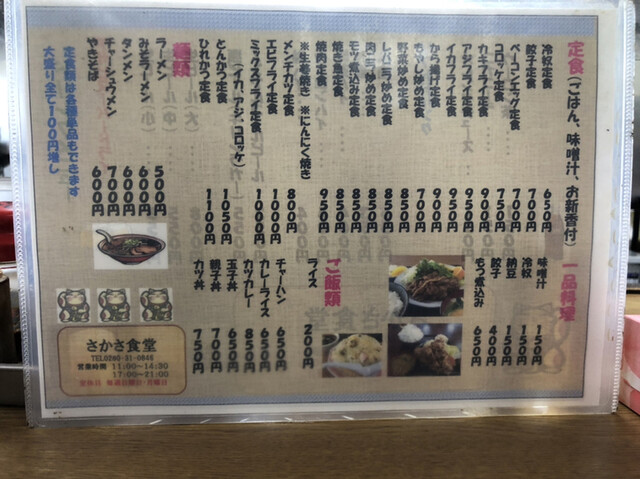 定食(ごはん、味噌汁、お新香付)
冷奴定食 650円
餃子定食 700円
ベーコンエッグ定食 700円
コロッケ定食 750円
カキフライ定食 900円
アジフライ定食 950円
イカフライ定食 950円
から揚げ定食 900円
もやし炒め定食 700円
野菜炒め定食 850円
レバニラ炒め定食 850円
肉ニラ炒め定食 850円
モツ煮込み定食 850円
焼き魚定食 850円
焼肉定食 950円
※生姜焼き ※にんにく焼き
メンチカツ定食 800円
エビフライ定食 1000円
ミックスフライ定食 1000円
(イカ、アジ、コロッケ)
とんかつ定食 1050円
ひれかつ定食 1100円
麺類
ラーメン 500円
みそラーメン 600円
タンメン 600円
チャーシュウメン 700円
やきそば 600円
定食類は各種単品もできます
大盛り全て100円増し
一品料理
味噌汁 150円
冷奴 150円
納豆 150円
餃子 400円
もつ煮込み 650円
ご飯類
ライス 200円
チャーハン 650円
カレーライス 650円
カツカレー 850円
玉子丼 650円
親子丼 700円
カツ丼 750円
さかさ食堂
TEL0280-31-0845
営業時間 11:00~14:30
17:00~21:00
定休日 毎週日曜日・月曜日